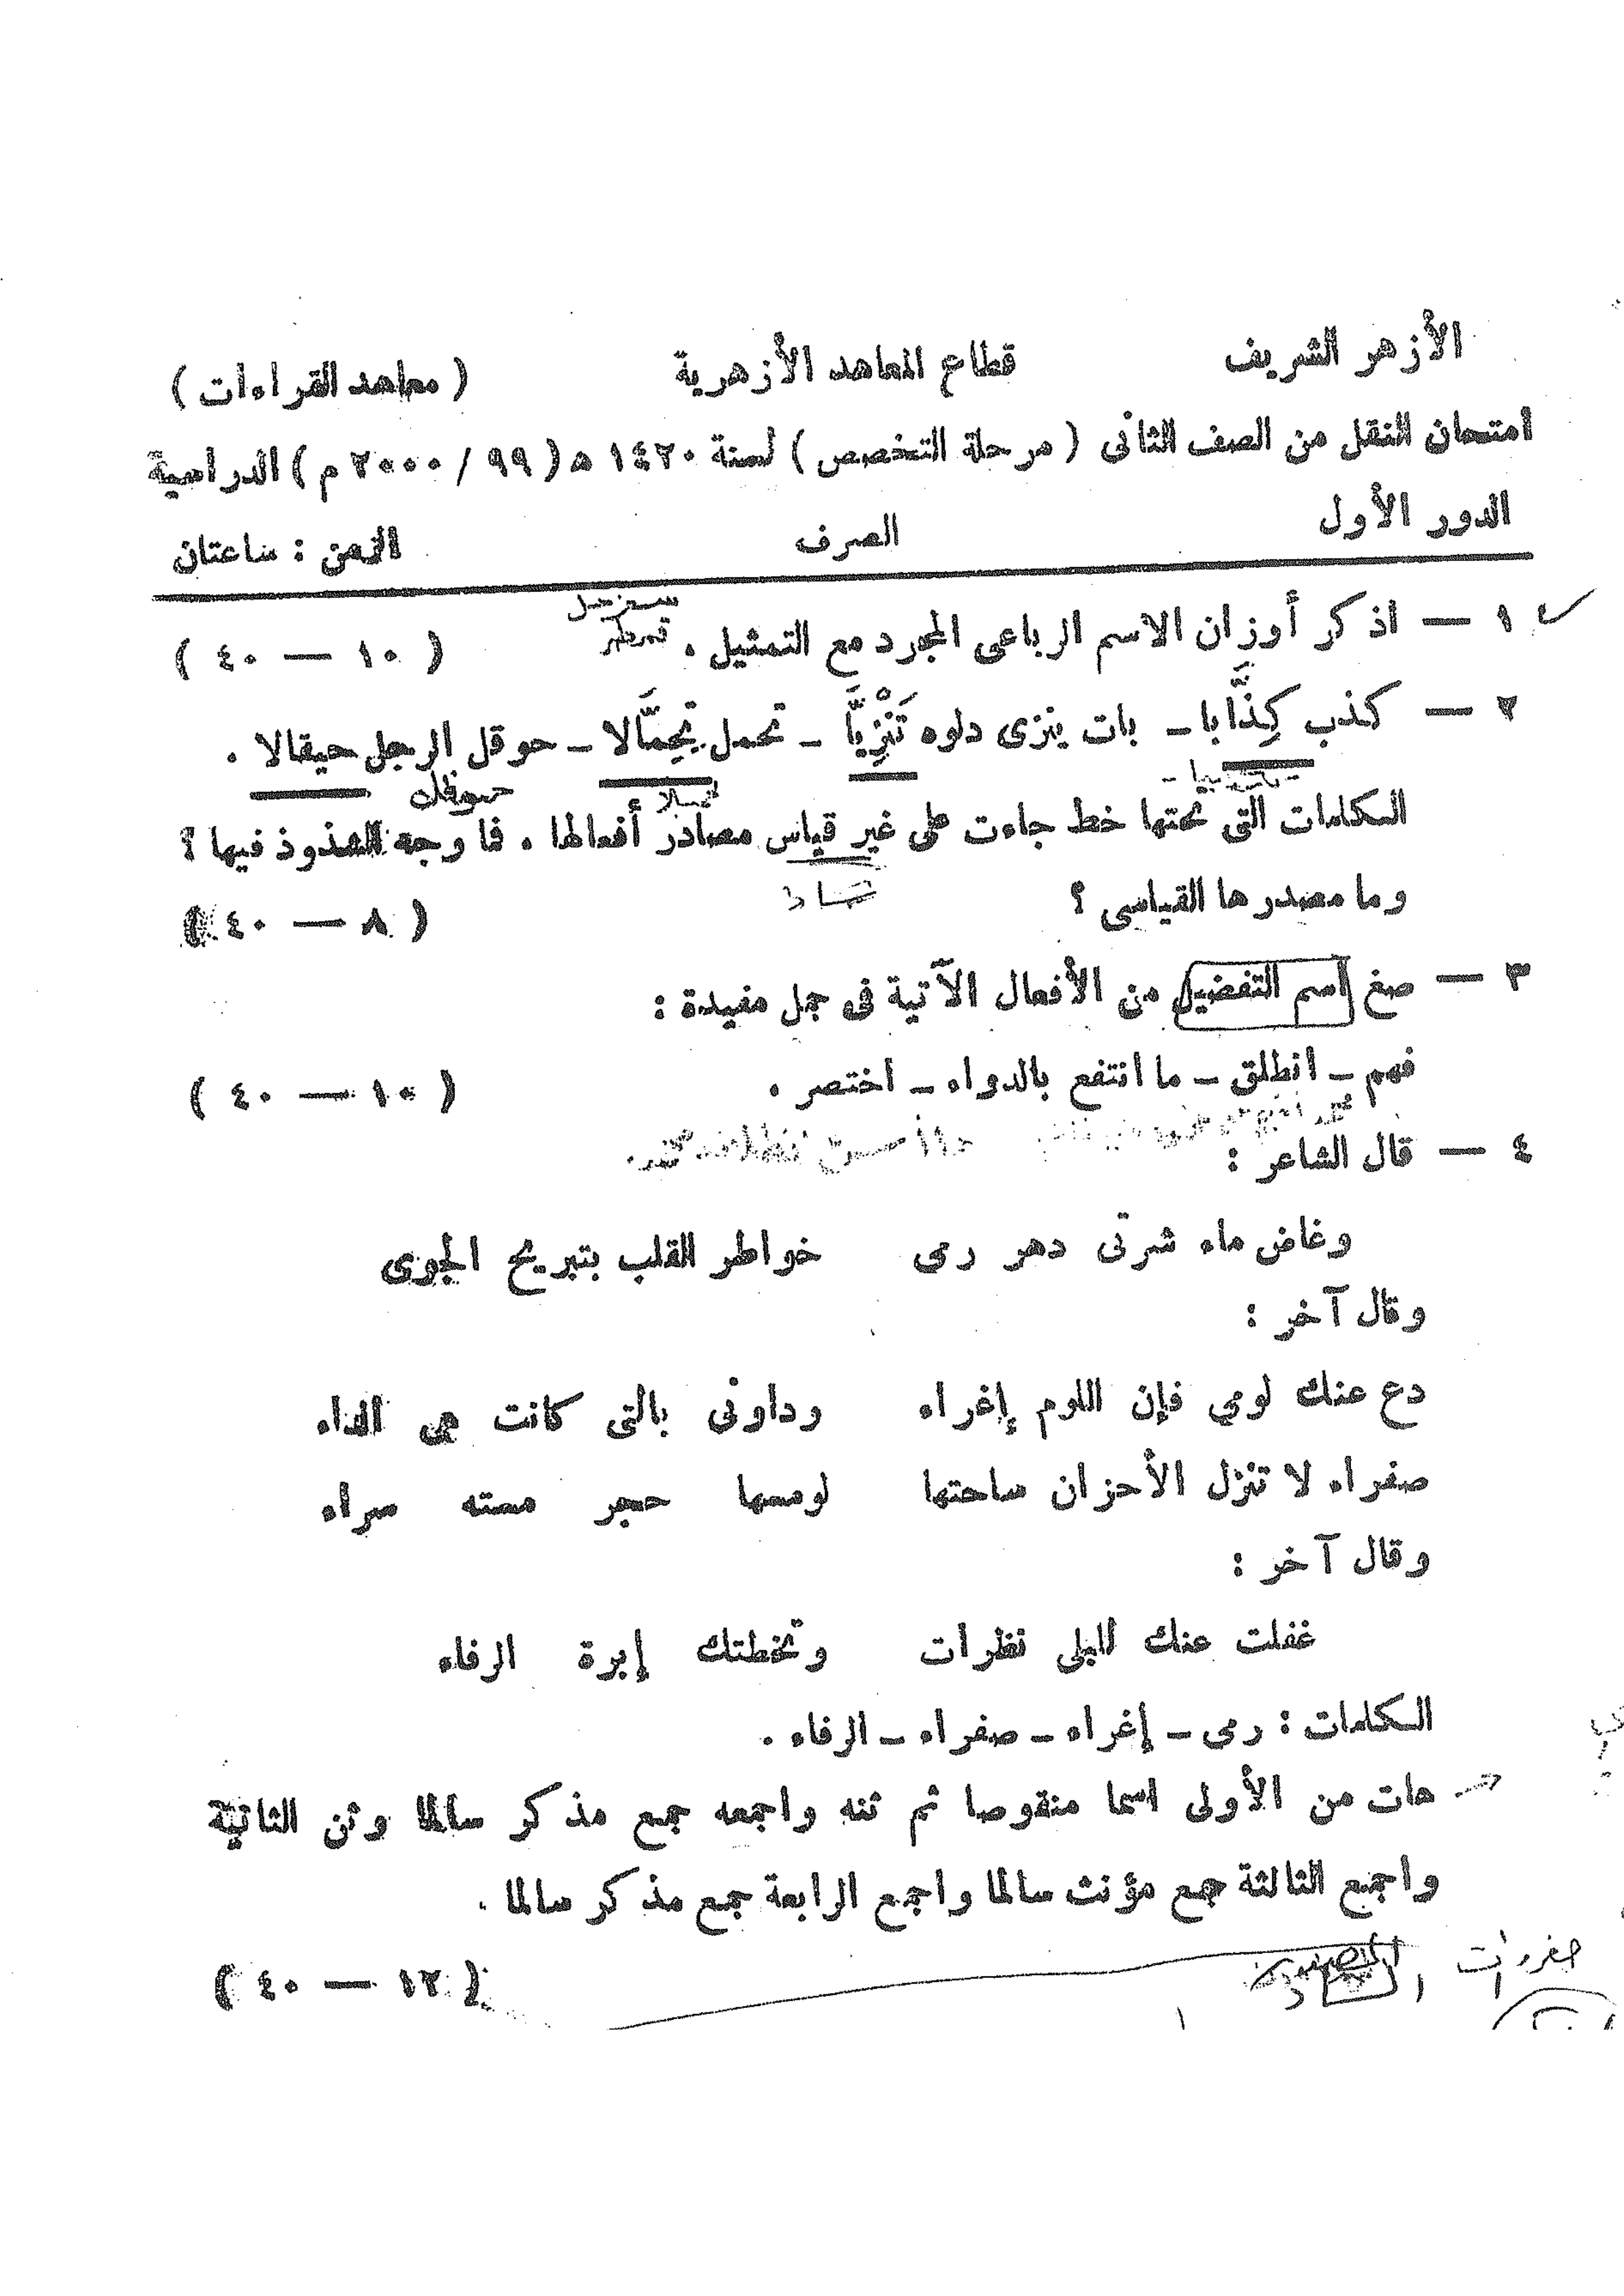 الأزهر الشريف قطاع المعاهد الأزهرية ( معاهد القراءات )
امتحان النقل من الصف الثانى ( مرحلة التخصص ) لسنة ١٤٢٠ ه ( ٩٩ / ٢٠٠٠ م ) الدراسية
الدور الأول الصرف الزمن : ساعتان
١ — اذكر أوزان الاسم الرباعى المجرد مع التمثيل . ( ١٠ — ٤٠ )
قمطر
٢ — كذب كِذَّابا ـ بات ينزى دلوه تَنْزِيًّا ـ تحمل تِحِمَّالا ـ حوقل الرجل حيقالا .
الكلمات التى تحتها خط جاءت على غير قياس مصادر أفعالها . فما وجه الشذوذ فيها ؟
وما مصدرها القياسى ؟ ( ٨ — ٤٠ )
٣ — صغ اسم التفضيل من الأفعال الآتية فى جمل مفيدة :
فهم ـ انطلق ـ ما انتفع بالدواء ـ اختصر . ( ١٠ — ٤٠ )
٤ — قال الشاعر :
وغاض ماء شرتى دهر رمى خواطر القلب بتبريح الجوى
وقال آخر :
دع عنك لومي فإن اللوم إغراء وداونى بالتى كانت هى الداء
صفراء لا تنزل الأحزان ساحتها لو مسها حجر مسته سراء
وقال آخر :
غفلت عنك لليلى نظرات وتخطتك إبرة الرفاء
الكلمات : رمى ـ إغراء ـ صفراء ـ الرفاء .
هات من الأولى اسما منقوصا ثم ثنه واجمعه جمع مذكر سالما وثن الثانية
واجمع الثالثة جمع مؤنث سالما واجمع الرابعة جمع مذكر سالما .
( ١٢ — ٤٠ )
صفروات